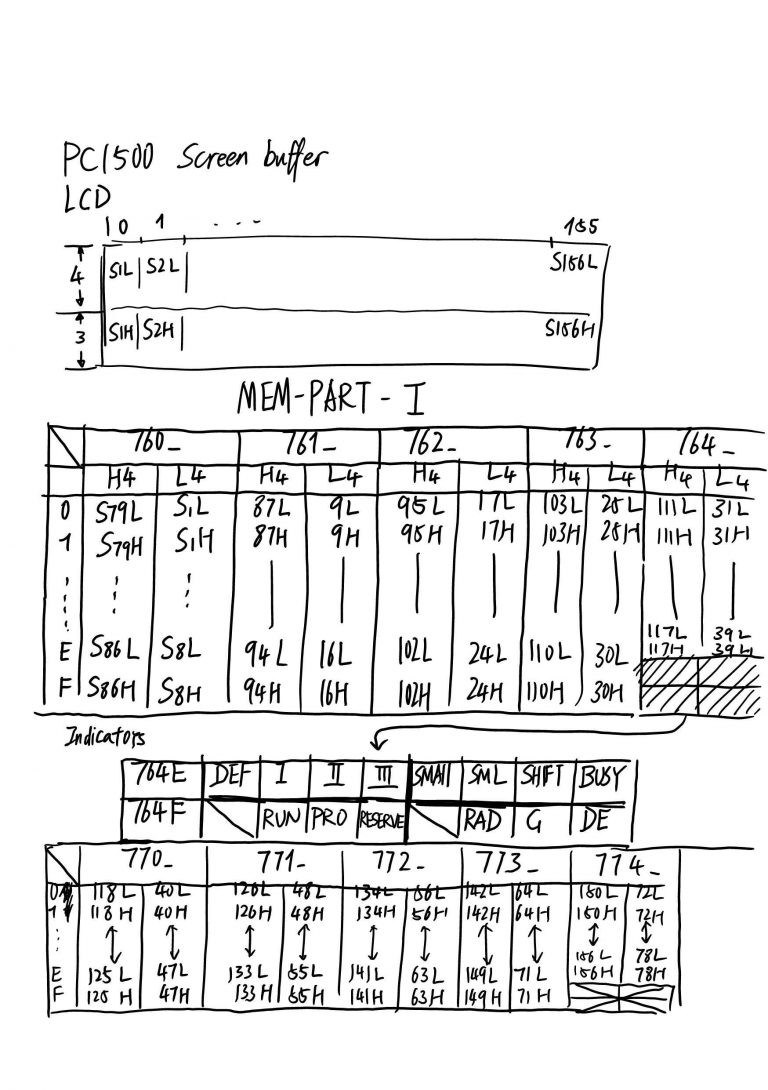 PC1500 Screen buffer
LCD
0 1 . . . 155
4 S1L S2L S156L
3 S1H S2H S156H
MEM-PART-I
760_ 761_ 762_ 763_ 764_
H4 L4 H4 L4 H4 L4 H4 L4 H4 L4
0 S79L S1L 87L 9L 95L 17L 103L 25L 111L 31L
1 S79H S1H 87H 9H 95H 17H 103H 25H 111H 31H
117L 39L
E S86L S8L 94L 16L 102L 24L 110L 30L 117H 39H
F S86H S8H 94H 16H 102H 24H 110H 30H
Indicators
764E DEF I II III SMAll SML SHIFT BUSY
764F RUN PRO RESERVE RAD G DE
770_ 771_ 772_ 773_ 774_
0 118L 40L 126L 48L 134L 56L 142L 64L 150L 72L
1 118H 40H 126H 48H 134H 56H 142H 64H 150H 72H
156L 78L
E 125L 47L 133L 55L 141L 63L 149L 71L 156H 78H
F 125H 47H 133H 55H 141H 63H 149H 71H